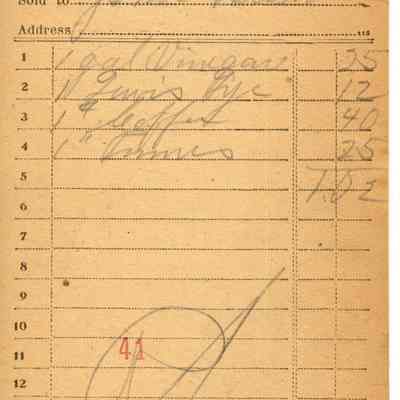 Sold to
Address
1 1 gal Vinegar 25
2 1 Lewis Lye 12
3 1 # Coffee 40
4 1 " 25
5 1.02
6
7
8
9
10
11 41
12